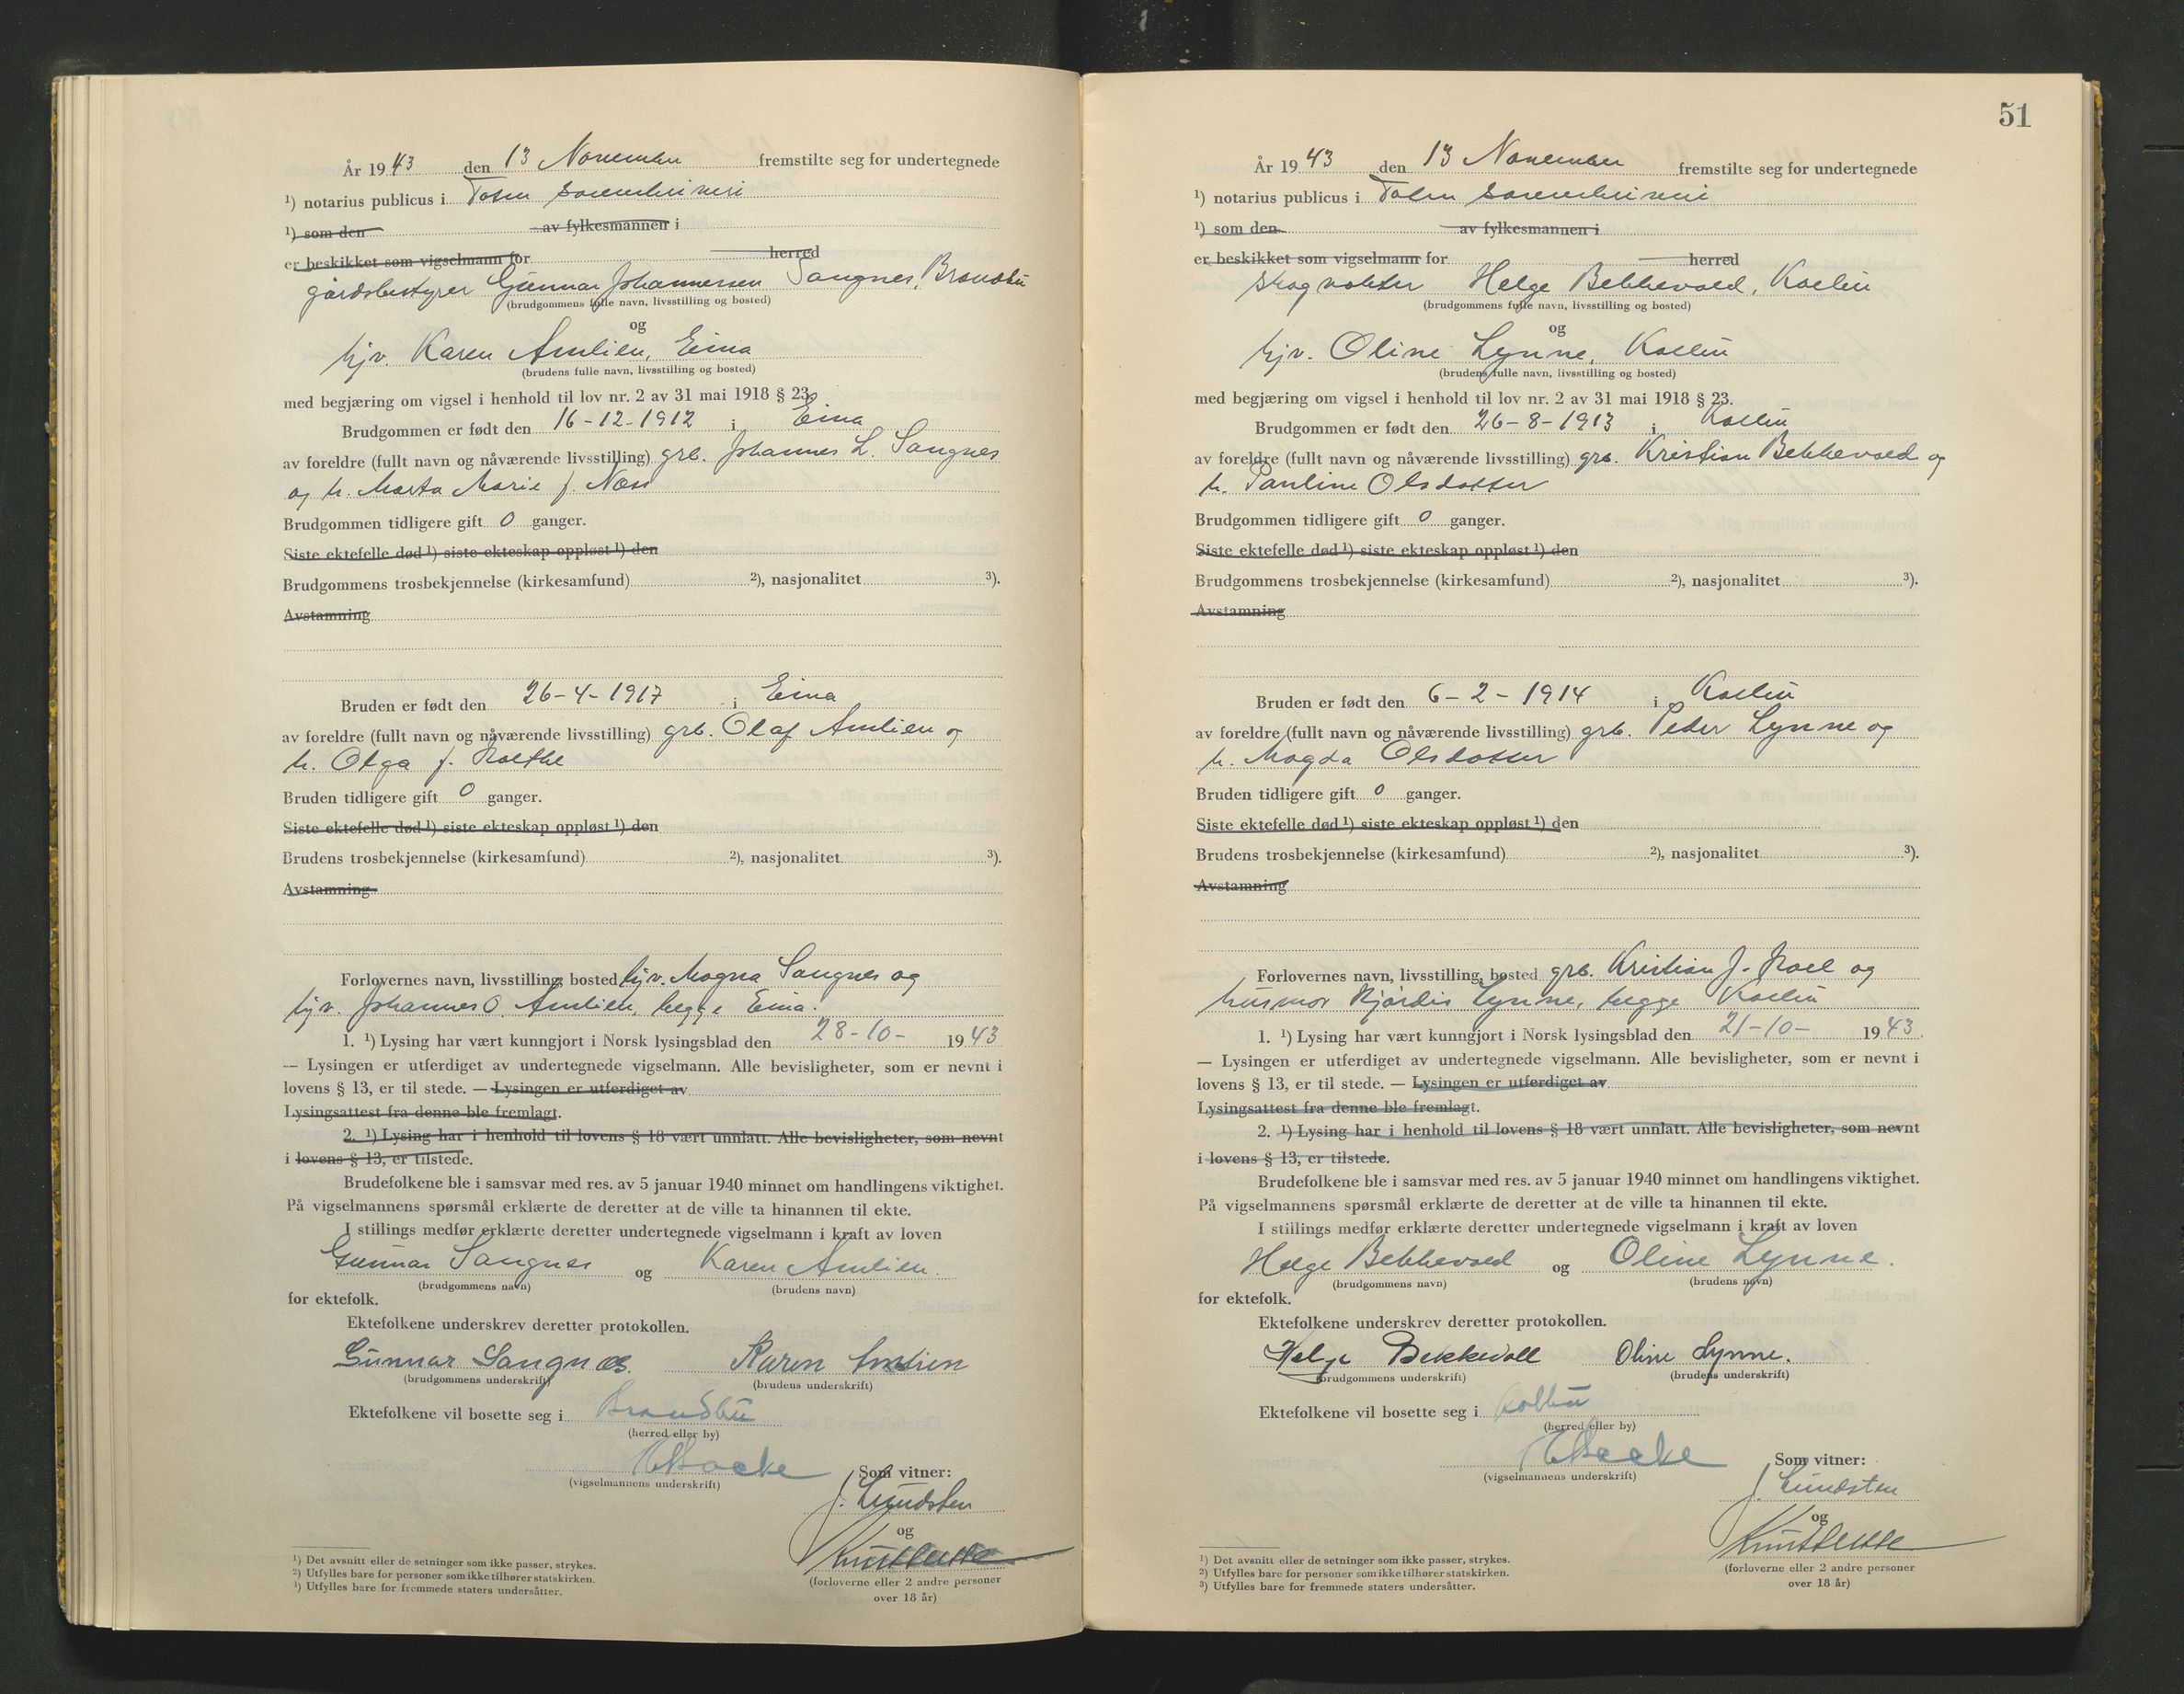 År 1943 den 13 November fremstilte seg for undertegnede
¹) notarius publicus i Toten sorenskriveri
¹) som den av fylkesmannen i
er beskikket som vigselmann for herred
gårdsbestyrer Gunnar Johannessen Sangnes, Brandbu
(brudgommens fulle navn, livsstilling og bosted)
og
hjv. Karen Amlien, Eina
(brudens fulle navn, livsstilling og bosted)
med begjæring om vigsel i henhold til lov nr. 2 av 31 mai 1918 § 23.
Brudgommen er født den 16-12-1912 i Eina
av foreldre (fullt navn og nåværende livsstilling) grb. Johannes L. Sangnes
og h. Marta Marie f. Næss
Brudgommen tidligere gift 0 ganger.
Siste ektefelle død ¹) siste ekteskap oppløst ¹) den
Brudgommens trosbekjennelse (kirkesamfund) ²), nasjonalitet ³).
Avstamning
Bruden er født den 26-4-1917 i Eina
av foreldre (fullt navn og nåværende livsstilling) grb. Olaf Amlien og
h. Olga f.
Bruden tidligere gift 0 ganger.
Siste ektefelle død ¹) siste ekteskap oppløst ¹) den
Brudens trosbekjennelse (kirkesamfund) ²), nasjonalitet ³).
Avstamning
Forlovernes navn, livsstilling, bosted hjv. Magna Sangnes og
hjv. Johannes O. Amlien, begge Eina.
1. ¹) Lysing har vært kunngjort i Norsk lysingsblad den 28-10- 1943
— Lysingen er utferdiget av undertegnede vigselmann. Alle bevisligheter, som er nevnt i
lovens § 13, er til stede. — Lysingen er utferdiget av
Lysingsattest fra denne ble fremlagt.
2. ¹) Lysing har i henhold til lovens § 18 vært unnlatt. Alle bevisligheter, som nevnt
i lovens § 13, er tilstede.
Brudefolkene ble i samsvar med res. av 5 januar 1940 minnet om handlingens viktighet.
På vigselmannens spørsmål erklærte de deretter at de ville ta hinannen til ekte.
I stillings medfør erklærte deretter undertegnede vigselmann i kraft av loven
Gunnar Sangnes og Karen Amlien.
(brudgommens navn) (brudens navn)
for ektefolk.
Ektefolkene underskrev deretter protokollen.
Gunnar Sangnæs. Karen Amlien
(brudgommens underskrift) (brudens underskrift)
Ektefolkene vil bosette seg i Brandbu
(herred eller by)
Som vitner:
(vigselmannens underskrift)
J. Lundsten
og
(forloverne eller 2 andre personer
over 18 år)
¹) Det avsnitt eller de setninger som ikke passer, strykes.
²) Utfylles bare for personer som ikke tilhører statskirken.
³) Utfylles bare for fremmede staters undersåtter.
51
År 1943 den 13 November fremstilte seg for undertegnede
¹) notarius publicus i Toten sorenskriveri
¹) som den av fylkesmannen i
er beskikket som vigselmann for herred
skogvokter Helge Bekkevold, Kolbu
(brudgommens fulle navn, livsstilling og bosted)
og
hjv. Oline Lynne, Kolbu
(brudens fulle navn, livsstilling og bosted)
med begjæring om vigsel i henhold til lov nr. 2 av 31 mai 1918 § 23.
Brudgommen er født den 26-8-1913 i Kolbu
av foreldre (fullt navn og nåværende livsstilling) grb. Kristian Bekkevold og
h. Pauline Olsdotter
Brudgommen tidligere gift 0 ganger.
Siste ektefelle død ¹) siste ekteskap oppløst ¹) den
Brudgommens trosbekjennelse (kirkesamfund) ²), nasjonalitet ³).
Avstamning
Bruden er født den 6-2-1914 i Kolbu
av foreldre (fullt navn og nåværende livsstilling) grb. Peder Lynne og
h. Magda Olsdotter
Bruden tidligere gift 0 ganger.
Siste ektefelle død ¹) siste ekteskap oppløst ¹) den
Brudens trosbekjennelse (kirkesamfund) ²), nasjonalitet ³).
Avstamning
Forlovernes navn, livsstilling, bosted grb. Kristian J. og
husmor Hjørdis Lynne, begge Kolbu
1. ¹) Lysing har vært kunngjort i Norsk lysingsblad den 21-10- 1943.
— Lysingen er utferdiget av undertegnede vigselmann. Alle bevisligheter, som er nevnt i
lovens § 13, er til stede. — Lysingen er utferdiget av
Lysingsattest fra denne ble fremlagt.
2. ¹) Lysing har i henhold til lovens § 18 vært unnlatt. Alle bevisligheter, som nevnt
i lovens § 13, er tilstede.
Brudefolkene ble i samsvar med res. av 5 januar 1940 minnet om handlingens viktighet.
På vigselmannens spørsmål erklærte de deretter at de ville ta hinannen til ekte.
I stillings medfør erklærte deretter undertegnede vigselmann i kraft av loven
Helge Bekkevold og Oline Lynne.
(brudgommens navn) (brudens navn)
for ektefolk.
Ektefolkene underskrev deretter protokollen.
Helge Bekkevoll Oline Lynne.
(brudgommens underskrift) (brudens underskrift)
Ektefolkene vil bosette seg i Kolbu
(herred eller by)
Som vitner:
(vigselmannens underskrift)
J. Lundsten
og
(forloverne eller 2 andre personer
over 18 år)
¹) Det avsnitt eller de setninger som ikke passer, strykes.
²) Utfylles bare for personer som ikke tilhører statskirken.
³) Utfylles bare for fremmede staters undersåtter.